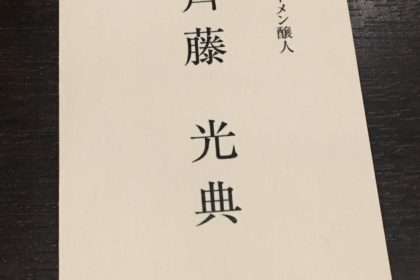 メン醸人
藤 光典